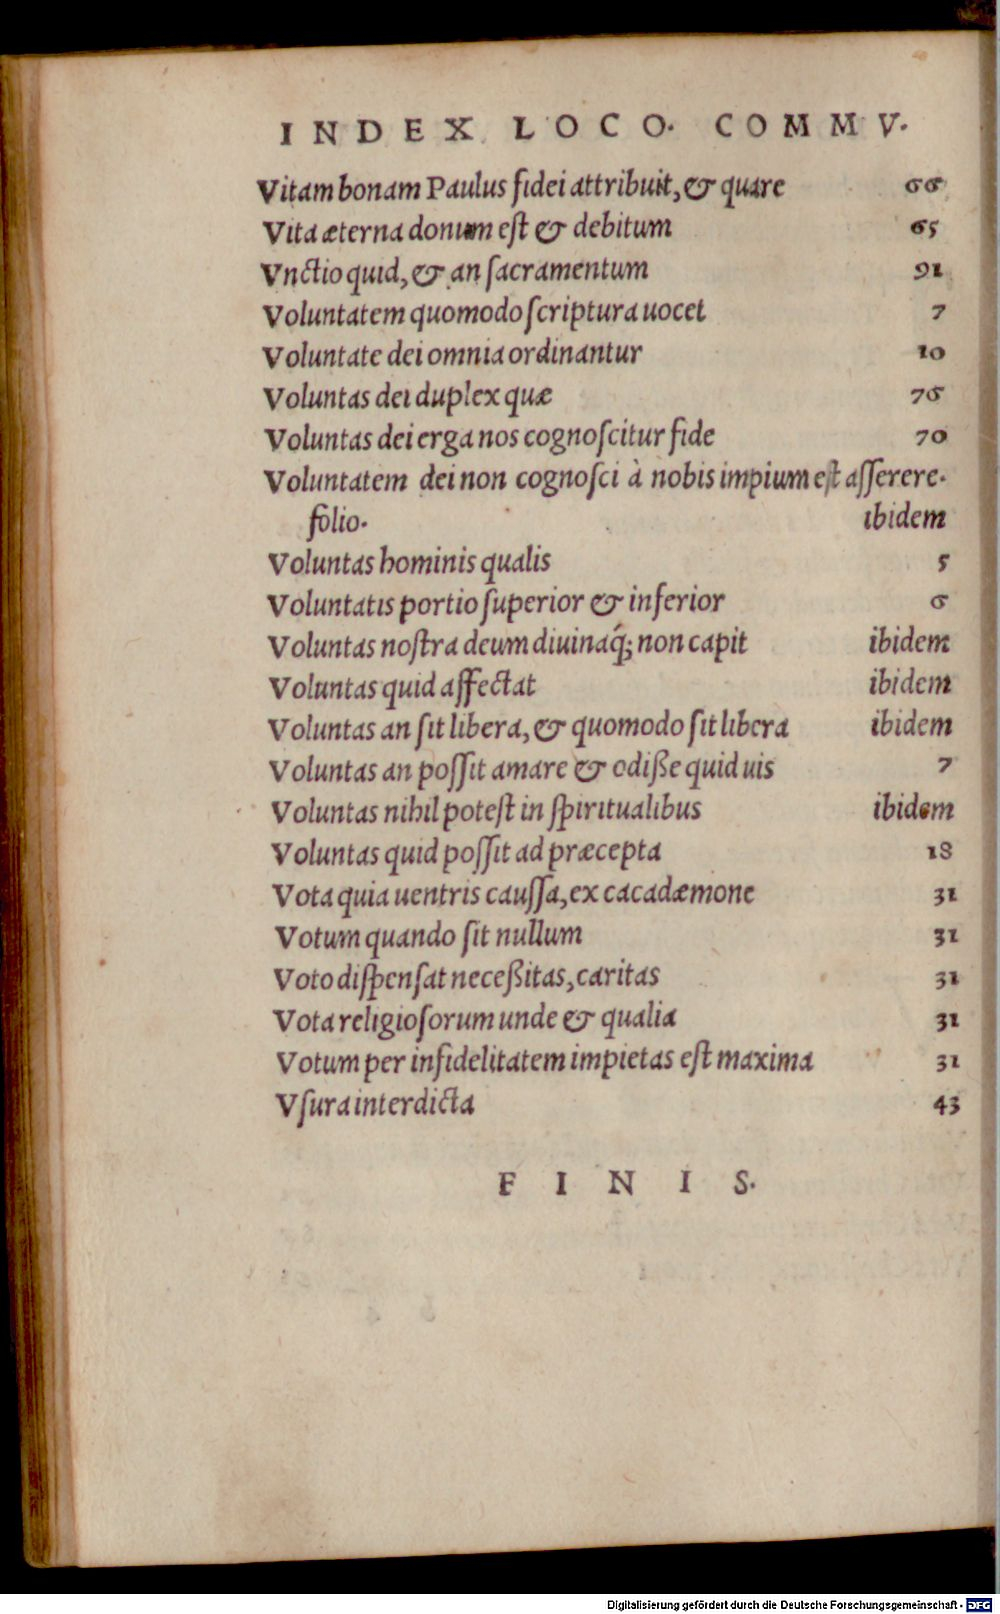 INDEX LOCO. COMMV.
Vitam bonam Paulus fidei attribuit, & quare 66
Vita æterna donum est & debitum 65
Vnctio quid, & an sacramentum 91
Voluntatem quomodo scriptura uocet 7
Voluntate dei omnia ordinantur 10
Voluntas dei duplex quæ 76
Voluntas dei erga nos cognoscitur fide 70
Voluntatem dei non cognosci à nobis impium est asserere.
folio. ibidem
Voluntas hominis qualis 5
Voluntatis portio superior & inferior 6
Voluntas nostra deum diuinaq́; non capit ibidem
Voluntas quid affectat ibidem
Voluntas an sit libera, & quomodo sit libera ibidem
Voluntas an possit amare & odiße quid uis 7
Voluntas nihil potest in spiritualibus ibidem
Voluntas quid possit ad præcepta 18
Vota quia uentris caussa, ex cacadæmone 31
Votum quando sit nullum 31
Voto dispensat neceßitas, caritas 31
Vota religiosorum unde & qualia 31
Votum per infidelitatem impietas est maxima 31
Vsura interdicta 43
FINIS.
Digitalisierung gefördert durch die Deutsche Forschungsgemeinschaft - DFG